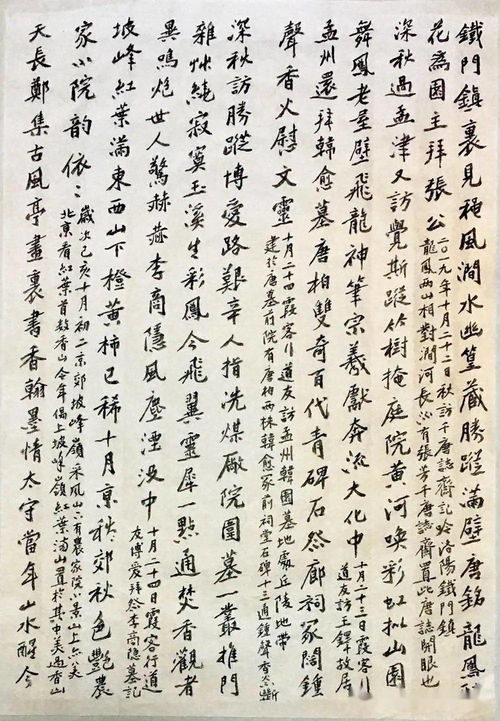 鐵門鎮裏見風澗水幽篁藏勝蹤滿壁唐銘龍鳳
花為園主拜張公
二〇一九年十月二十二日秋訪千唐誌齋記於洛陽鐵門鎮
龍鳳兩山相對澗河長有張芳千唐誌齋置此唐誌開眼也
深秋過孟津又訪覺斯蹤竹樹掩庭院黃河喚彩虹拟山園
舞鳳老屋壁飛龍神筆宗羲獻奔流大化中
十月二十三日霞客行
道友訪王鐸故居
孟州還拜韓愈墓唐柏雙奇百代青碑石祭廊祠冢闊鍾
聲香火慰文靈
十月二十四霞客行道友訪孟州韓園墓地處丘陵地帶
建於唐墓前院有唐柏兩株韓愈冢前祠堂石碑十三通鍾聲香火不斷
深秋訪勝蹤博愛路艱辛人指洗煤廠院圍墓一叢推門
雜艸繞寂寞玉溪生彩鳳今飛翼靈犀一點通焚香觀者
異鳴炮世人驚赫赫李商隱風塵湮没中
十月二十四日霞客行道
友博愛拜祭李商隱墓記
坡峰紅葉滿東西山下橙黃柿已稀十月京郊秋色艷農
家小院韵依〻
歲次己亥十月初二京郊坡峰嶺采風山下有農家院小景山上
北京看紅葉首數香山今年偶上坡峰嶺紅葉滿山置於其中美過香山
天長鄭集古風亭畫裏書香翰墨情太守當年山水醒今